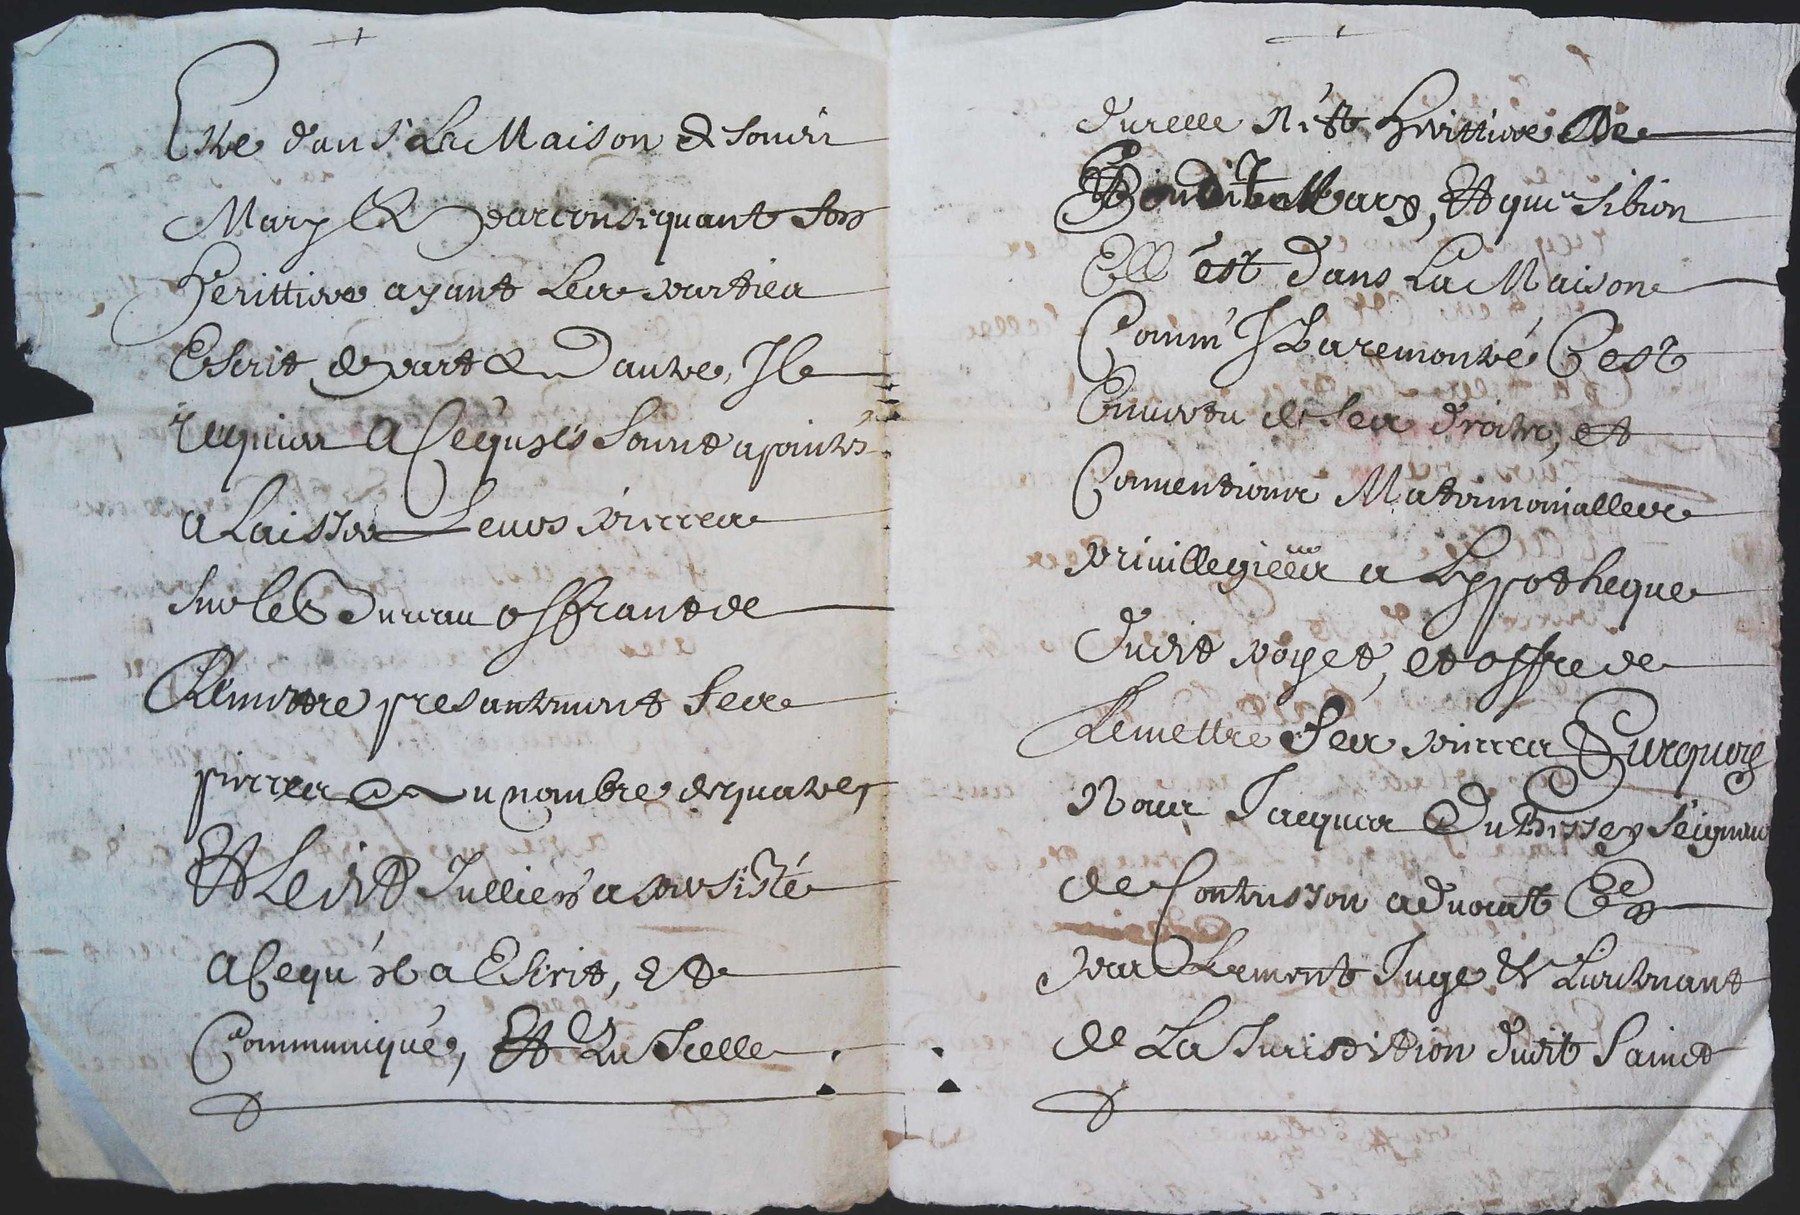 Estre dans La Maison de sondit
Mary Et par consequant son
Herittiere ayant Les parties
Escrit de part & Dautre, Il
requier a Ce qu'ils soint apointés
a Laisser Leurs pieces
sur le Bureau offrant de
Remettre presantement ses
pieces au nombre de quatre,
Et Ledit Jullien a persisté
a Ce qu'il a Escrit, et
Communiqué, Et La Icelle
Durelle N'est herittiere de
Sondit Mary, Et que si bien
Ell'est dans La Maison
Comm' Il La remontré C'est
En vertu de ses droits, et
Conventions Matrimonialles
privillegiées a L'ypotheque
dudit poyet, et offre de
Remettre ses pieces Surquoy
Nous Jacques Dubissey seigneur
de Contresson advocat En
parlement Juge Et Lieutenant
de La Jurisdition dudit Sainct